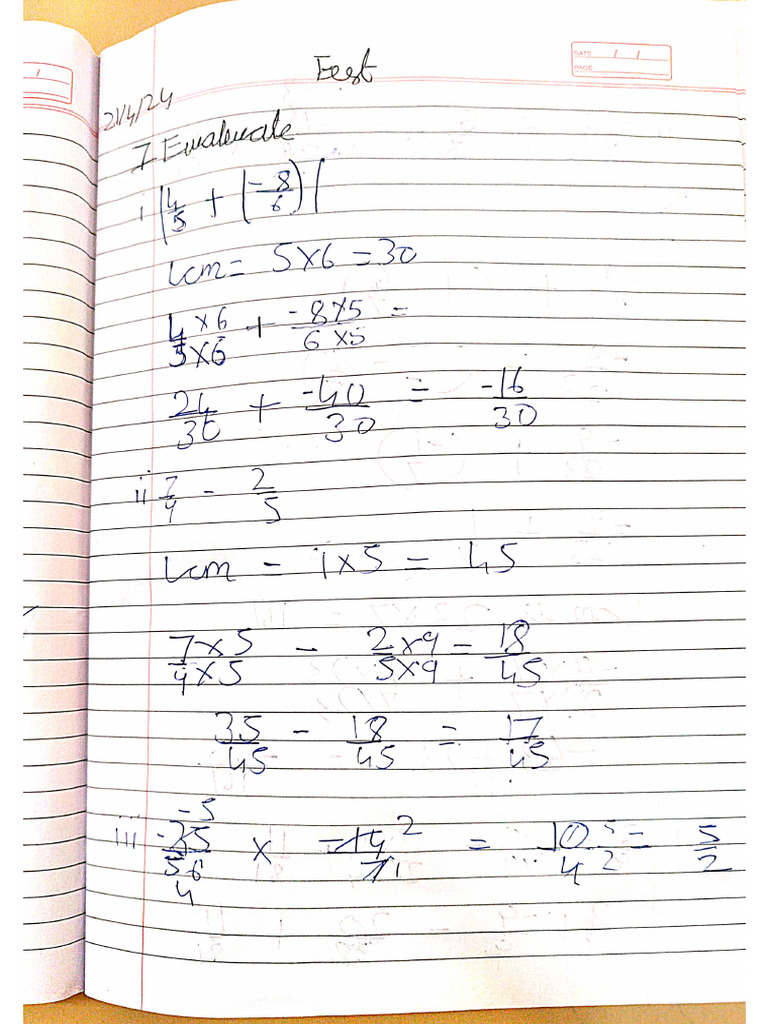 DATE / /
PAGE
Test
21/4/24
7 Evaluate
i |4/5 + (-8/6)|
Lcm = 5×6 = 30
4×6/5×6 + -8×5/6×5 =
24/30 + -40/30 = -16/30
ii 7/9 - 2/5
Lcm = 9×5 = 45
7×5/9×5 - 2×9/5×9 = 18/45
35/45 - 18/45 = 17/45
-5
iii -25/56 × -14 2/7 1 = 10 5/4 2 = 5/2
4